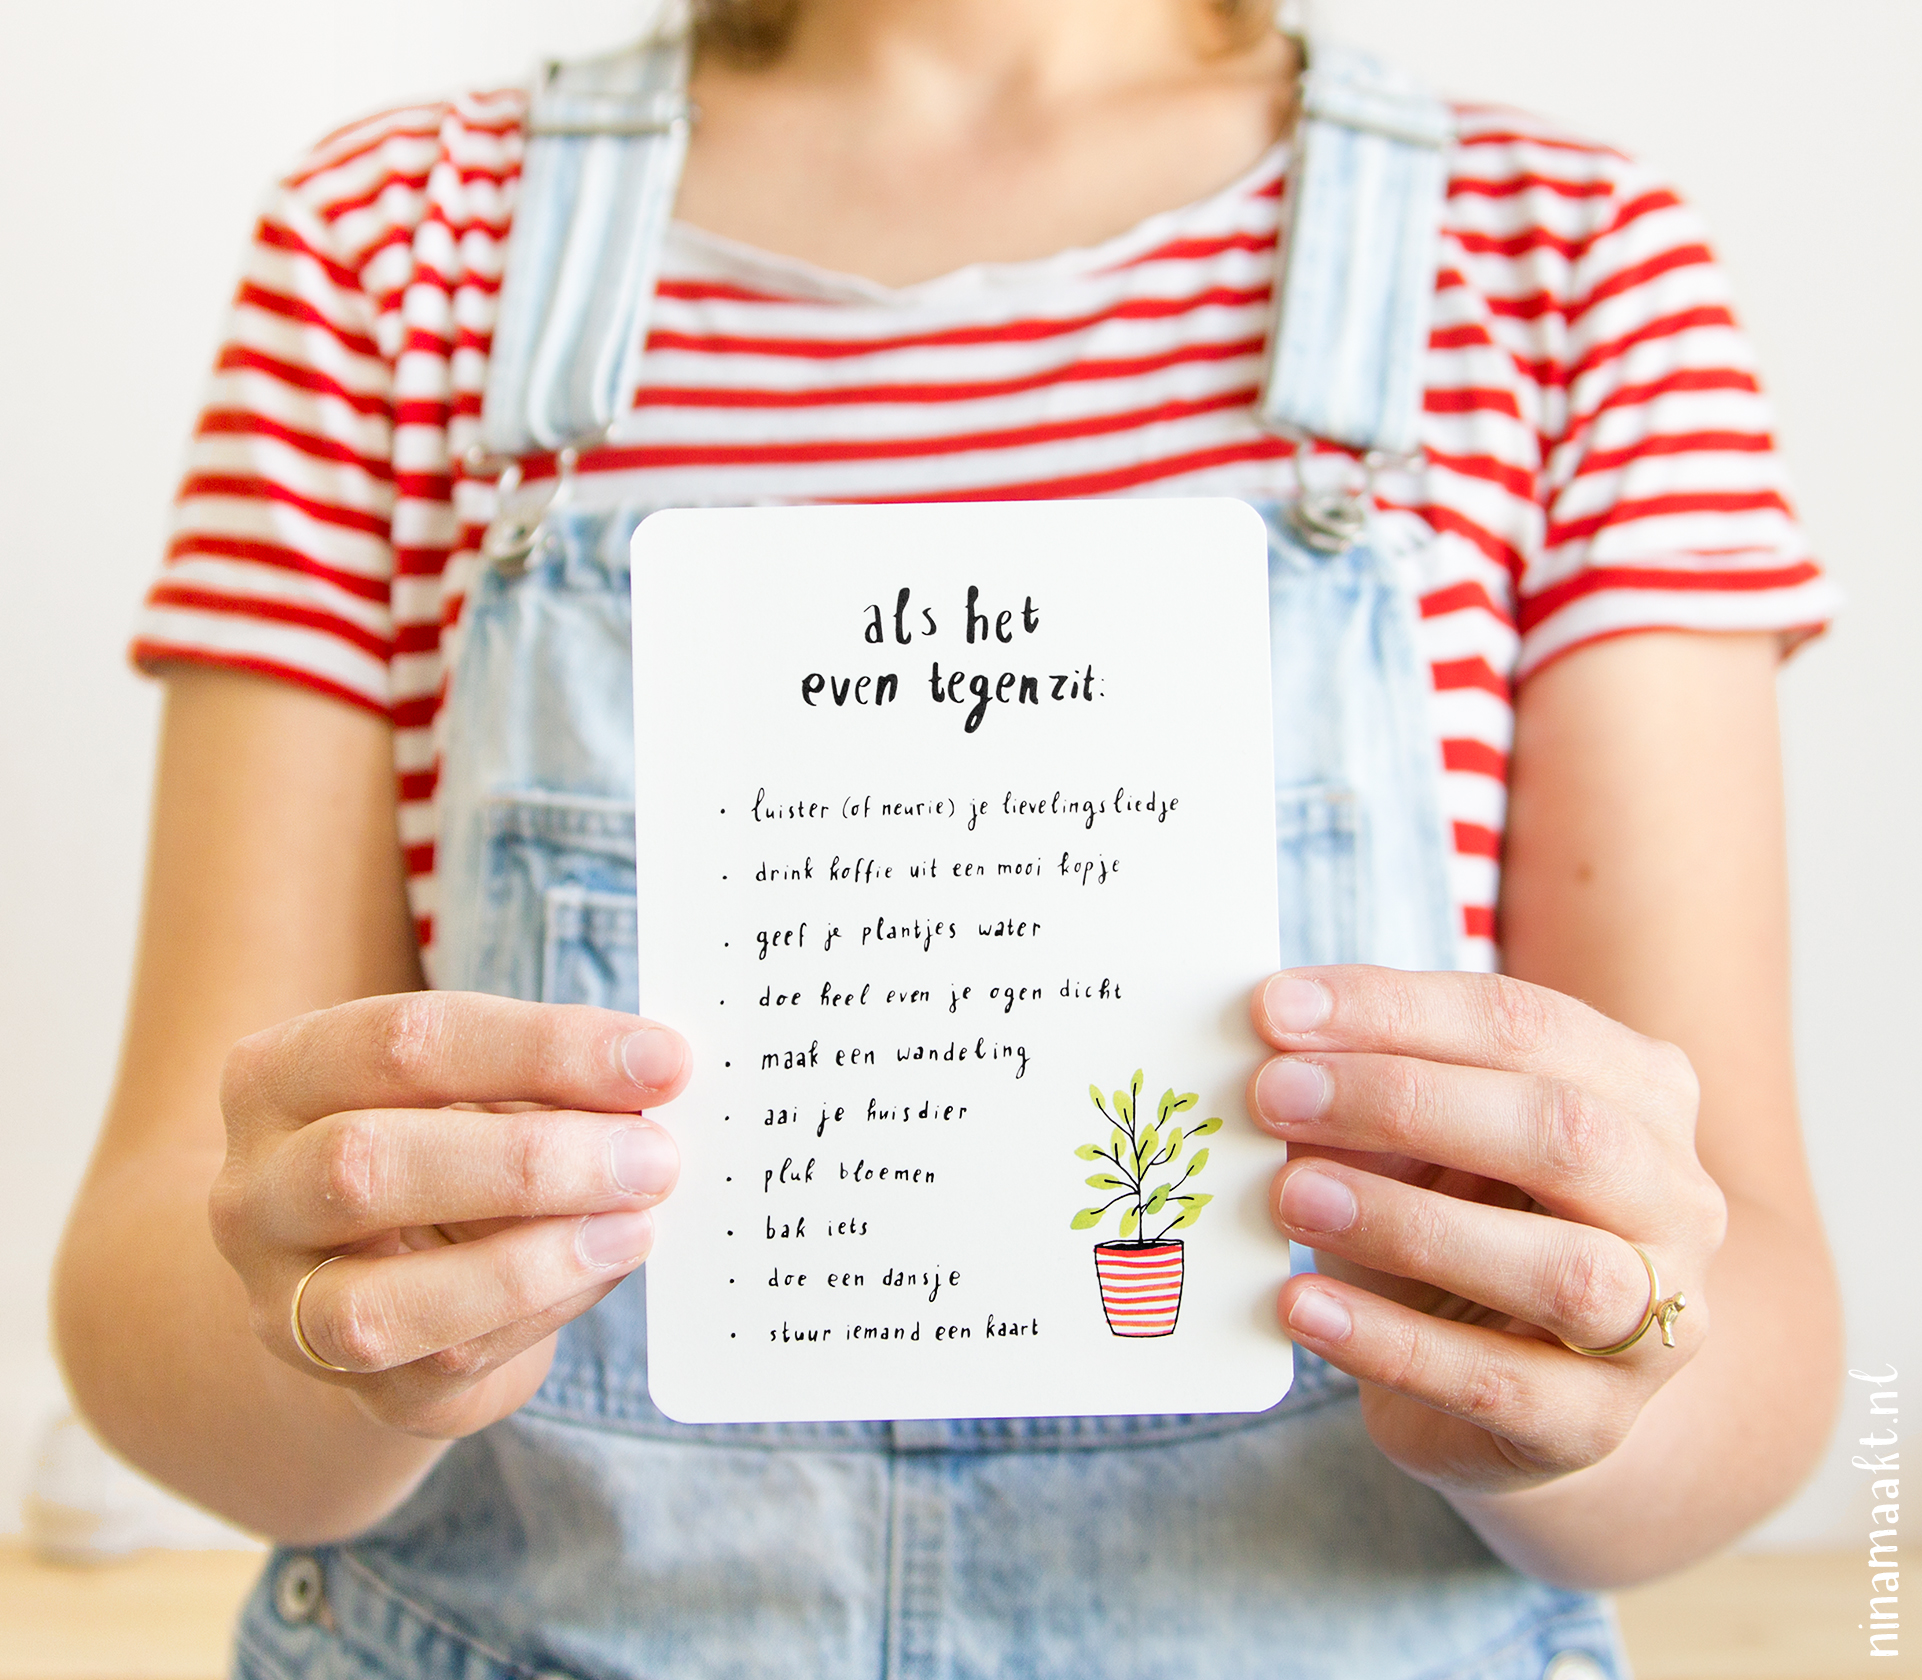 als het
even tegenzit:
• luister (of neurie) je lievelingsliedje
• drink koffie uit een mooi kopje
• geef je plantjes water
• doe heel even je ogen dicht
• maak een wandeling
• aai je huisdier
• pluk bloemen
• bak iets
• doe een dansje
• stuur iemand een kaart
ninamaakt.nl